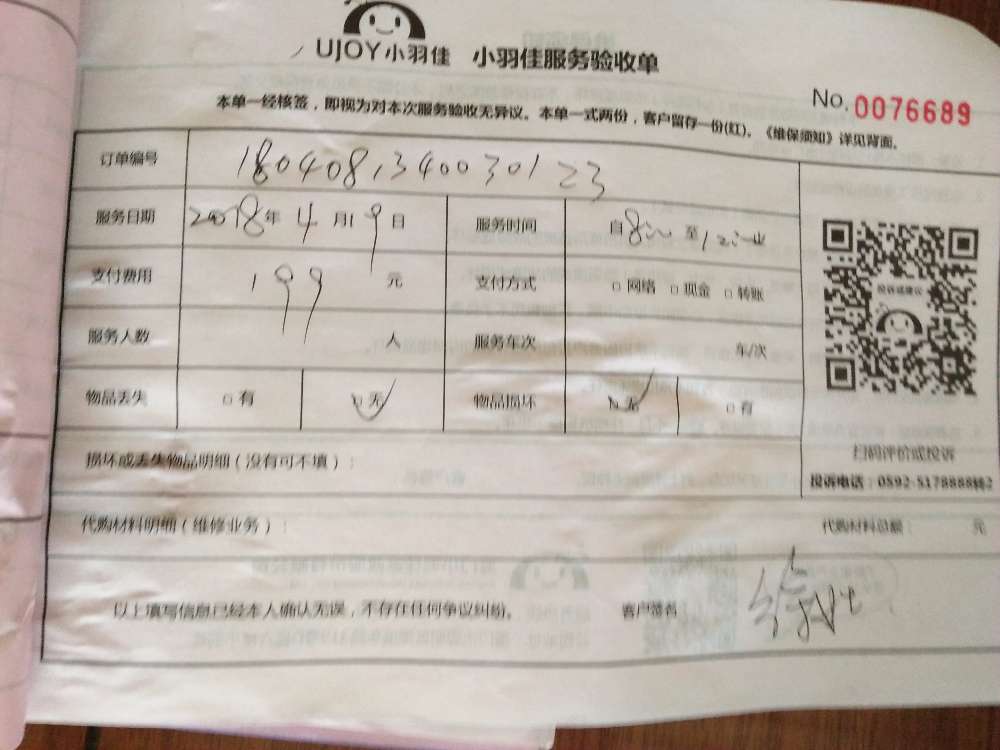 UJOY小羽佳 小羽佳服务验收单
No.0076689
本单一经核签，即视为对本次服务验收无异议。本单一式两份，客户留存一份(红)。《维保须知》详见背面。
订单编号 1804081340030123
服务日期 2018年4月19日 服务时间 自8:00至12:00止
支付费用 199 元 支付方式 □网络 □现金 □转账
服务人数 人 服务车次 车/次
物品丢失 □有 □无 物品损坏 □无 □有
损坏或丢失物品明细（没有可不填）：
投诉或建议
扫码评价或投诉
投诉电话：0592-5178888转2
代购材料明细（维修业务）： 代购材料总额： 元
以上填写信息已经本人确认无误，不存在任何争议纠纷。 客户签名：